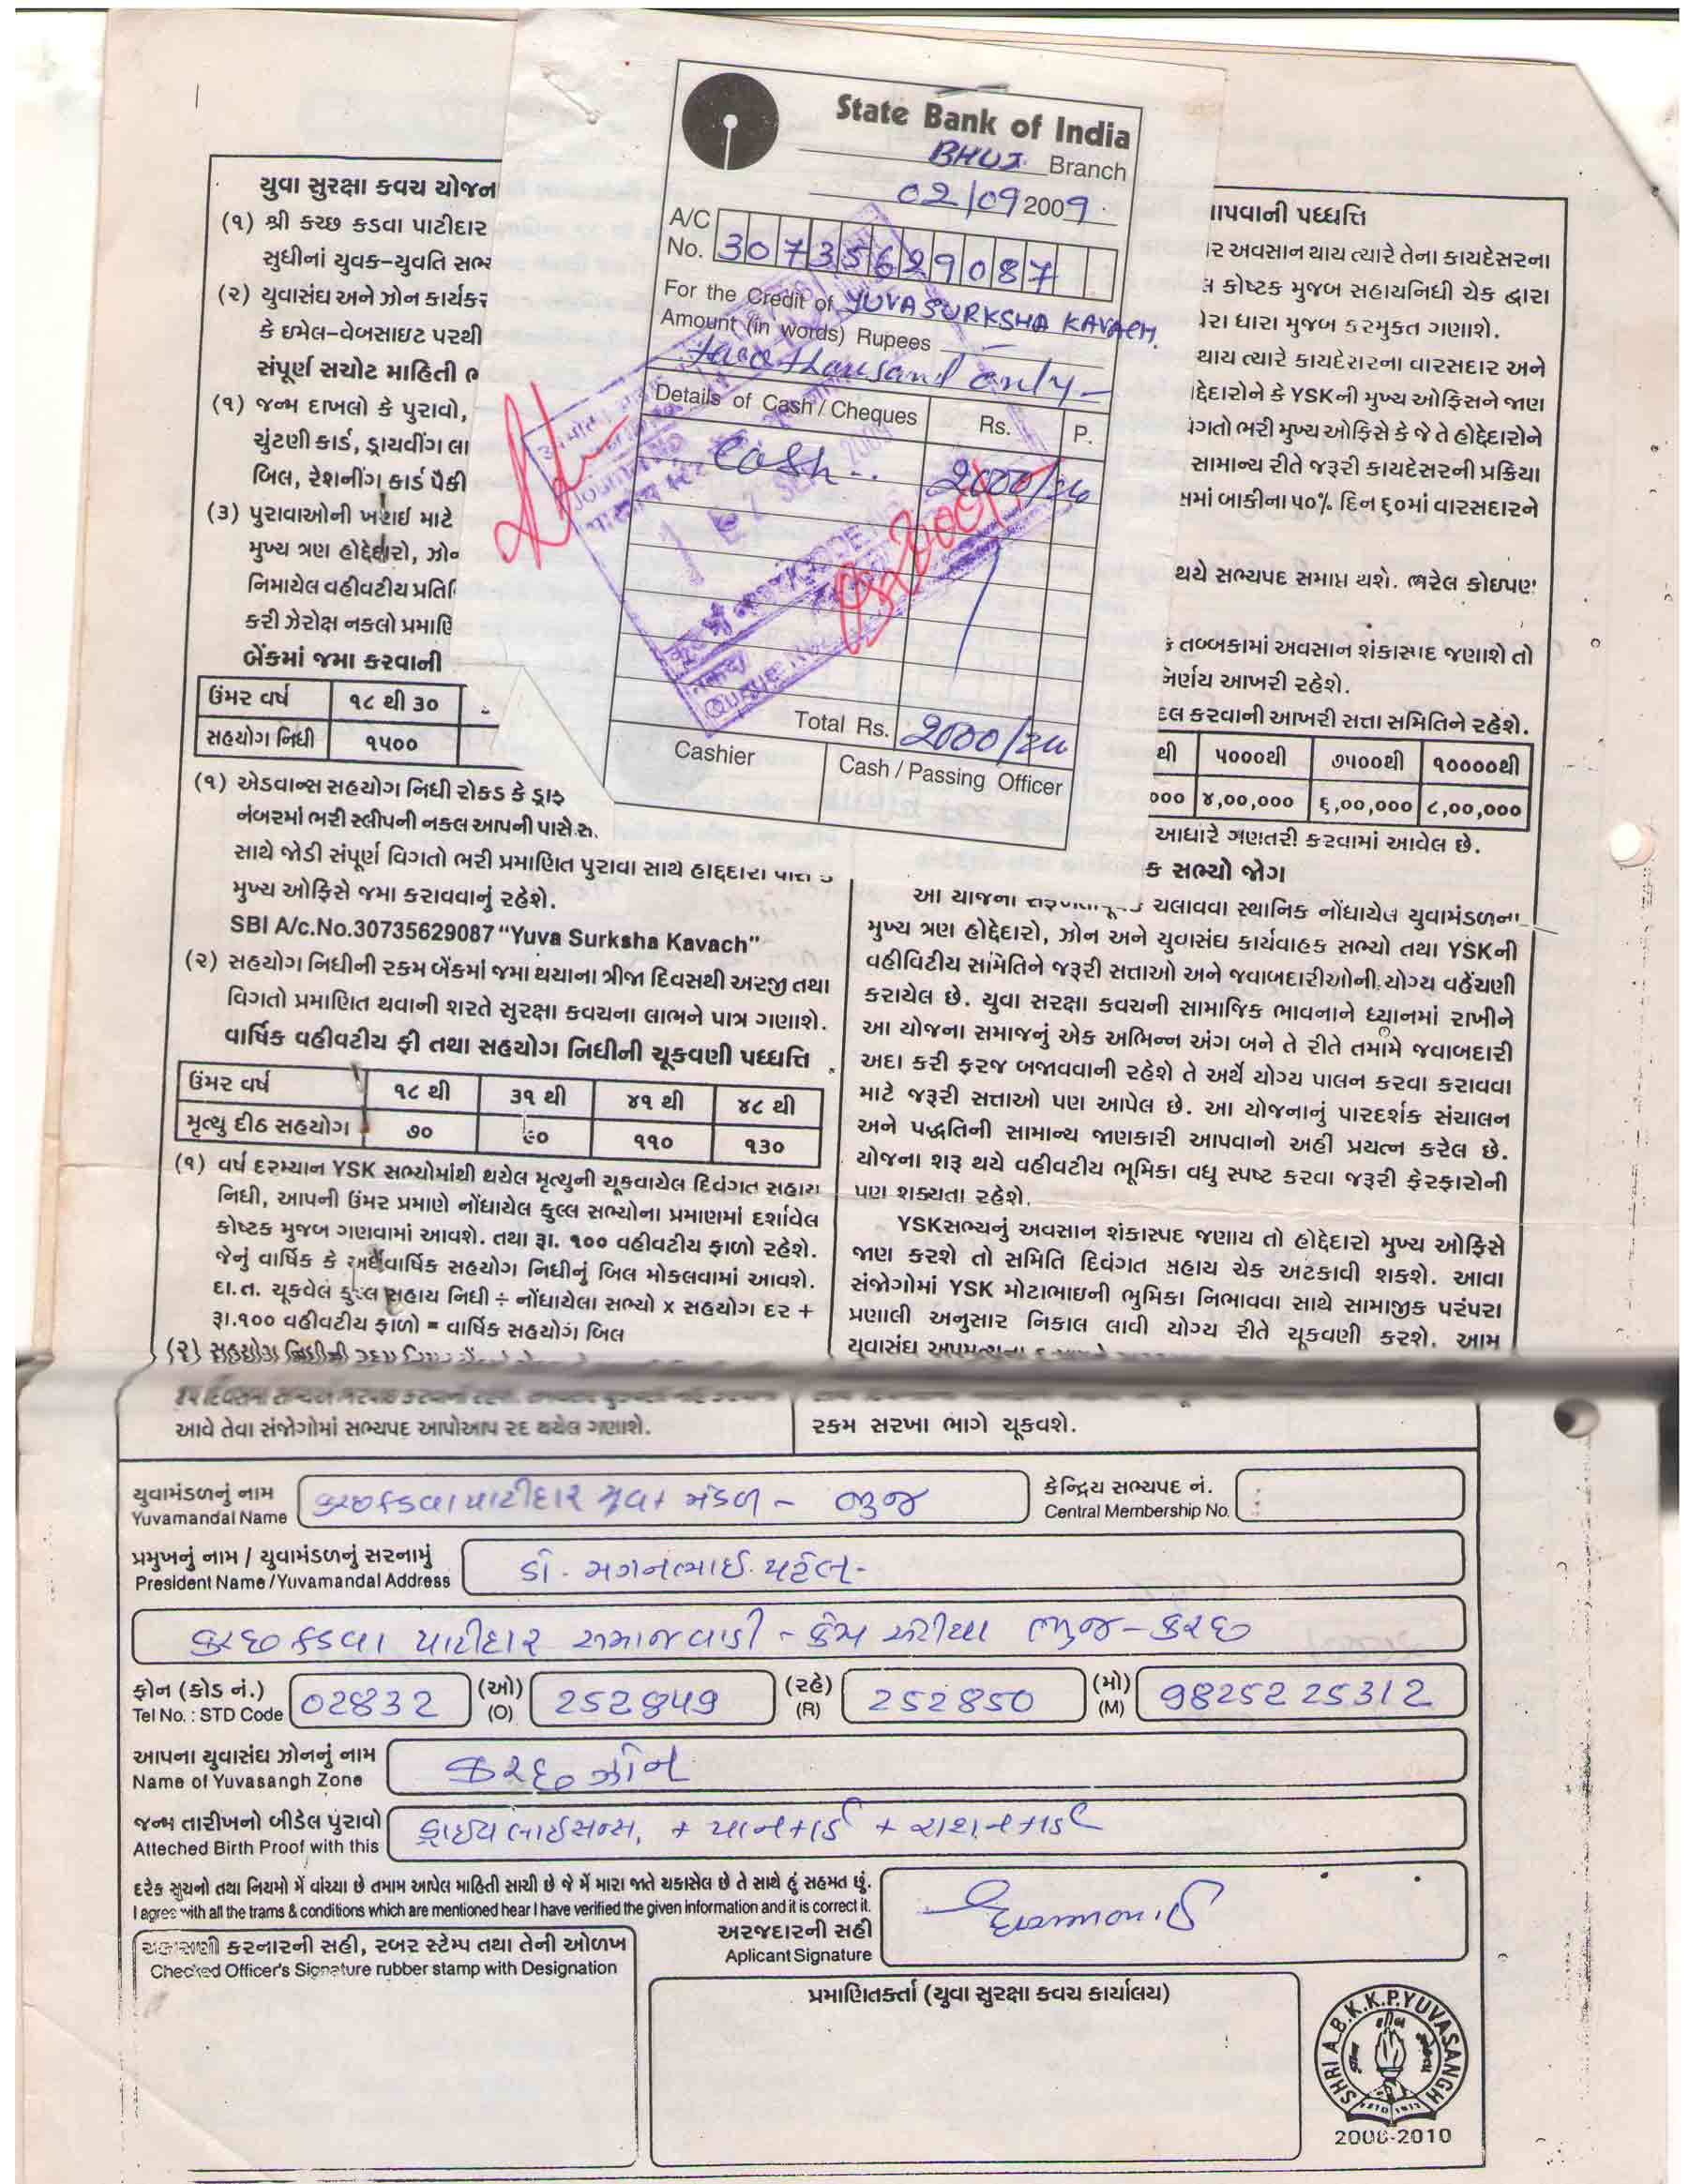 State Bank of India
BHUJ Branch
02/09 2009
A/C
No. 30735629087
For the Credit of YUVA SURKSHA KAVACH
Amount (in words) Rupees
two thousand only
Details of Cash / Cheques Rs. P.
Cash 2000/
Total Rs. 2000/
Cashier
Cash / Passing Officer
યુવા સુરક્ષા કવચ યોજન
(૧) શ્રી કચ્છ કડવા પાટીદાર
સુધીનાં યુવક-યુવતિ સભ્ય
(૨) યુવાસંઘ અને ઝોન કાર્યકર
કે ઇમેલ-વેબસાઇટ પરથી
સંપૂર્ણ સચોટ માહિતી ભ
(૧) જન્મ દાખલો કે પુરાવો,
ચુંટણી કાર્ડ, ડ્રાયવીંગ લા
બિલ, રેશનીંગ કાર્ડ પૈકી
(૩) પુરાવાઓની ખરાઇ માટે
મુખ્ય ત્રણ હોદ્દેદારો, ઝોન
નિમાયેલ વહીવટીય પ્રતિ
કરી ઝેરોક્ષ નકલો પ્રમાણિ
બેંકમાં જમા કરવાની
ઉંમર વર્ષ ૧૮ થી ૩૦
સહયોગ નિધી ૧૫૦૦
(૧) એડવાન્સ સહયોગ નિધી રોકડ કે ડ્રાફ
નંબરમાં ભરી સ્લીપની નકલ આપની પાસે
સાથે જોડી સંપૂર્ણ વિગતો ભરી પ્રમાણિત પુરાવા સાથે
મુખ્ય ઓફિસે જમા કરાવવાનું રહેશે.
SBI A/c.No.30735629087 "Yuva Surksha Kavach"
(૨) સહયોગ નિધીની રકમ બેંકમાં જમા થયાના ત્રીજા દિવસથી અરજી તથા
વિગતો પ્રમાણિત થવાની શરતે સુરક્ષા કવચના લાભને પાત્ર ગણાશે.
વાર્ષિક વહીવટીય ફી તથા સહયોગ નિધીની ચૂકવણી પધ્ધત્તિ
ઉંમર વર્ષ ૧૮ થી ૩૧ થી ૪૧ થી ૪૮ થી
મૃત્યુ દીઠ સહયોગ ૭૦ ૯૦ ૧૧૦ ૧૩૦
(૧) વર્ષ દરમ્યાન YSK સભ્યોમાંથી થયેલ મૃત્યુની ચૂકવાયેલ દિવંગત સહાય
નિધી, આપની ઉંમર પ્રમાણે નોંધાયેલ કુલ્લ સભ્યોના પ્રમાણમાં દર્શાવેલ
કોષ્ટક મુજબ ગણવામાં આવશે. તથા રૂા. ૧૦૦ વહીવટીય ફાળો રહેશે.
જેનું વાર્ષિક કે અર્ધવાર્ષિક સહયોગ નિધીનું બિલ મોકલવામાં આવશે.
દા.ત. ચૂકવેલ કુલ્લ સહાય નિધી ÷ નોંધાયેલા સભ્યો x સહયોગ દર +
રૂા.૧૦૦ વહીવટીય ફાળો = વાર્ષિક સહયોગ બિલ
(૨) સહયોગ નિધીની
આવે તેવા સંજોગોમાં સભ્યપદ આપોઆપ રદ થયેલ ગણાશે.
ાપવાની પધ્ધત્તિ
ાર અવસાન થાય ત્યારે તેના કાયદેસરના
કોષ્ટક મુજબ સહાયનિધી ચેક દ્વારા
ધારા મુજબ કરમુકત ગણાશે.
થાય ત્યારે કાયદેસરના વારસદાર અને
દ્દેદારોને કે YSKની મુખ્ય ઓફિસને જાણ
ગતો ભરી મુખ્ય ઓફિસે કે જે તે હોદ્દેદારોને
સામાન્ય રીતે જરૂરી કાયદેસરની પ્રક્રિયા
બાકીના ૫૦% દિન ૬૦માં વારસદારને
થયે સભ્યપદ સમાપ્ત થશે. ભરેલ કોઇપણ
તબ્બકામાં અવસાન શંકાસ્પદ જણાશે તો
નિર્ણય આખરી રહેશે.
કરવાની આખરી સત્તા સમિતિને રહેશે.
થી ૫૦૦૦થી ૭૫૦૦થી ૧૦૦૦૦થી
૦૦૦ ૪,૦૦,૦૦૦ ૬,૦૦,૦૦૦ ૮,૦૦,૦૦૦
આધારે ગણતરી કરવામાં આવેલ છે.
ક સભ્યો જોગ
આ યોજના ચલાવવા સ્થાનિક નોંધાયેલ યુવામંડળના
મુખ્ય ત્રણ હોદ્દેદારો, ઝોન અને યુવાસંઘ કાર્યવાહક સભ્યો તથા YSKની
વહીવિટીય સમિતિને જરૂરી સત્તાઓ અને જવાબદારીઓની યોગ્ય વહેંચણી
કરાયેલ છે. યુવા સરક્ષા કવચની સામાજિક ભાવનાને ધ્યાનમાં રાખીને
આ યોજના સમાજનું એક અભિન્ન અંગ બને તે રીતે તમામે જવાબદારી
અદા કરી ફરજ બજાવવાની રહેશે તે અર્થે યોગ્ય પાલન કરવા કરાવવા
માટે જરૂરી સત્તાઓ પણ આપેલ છે. આ યોજનાનું પારદર્શક સંચાલન
અને પદ્ધતિની સામાન્ય જાણકારી આપવાનો અહીં પ્રયત્ન કરેલ છે.
યોજના શરૂ થયે વહીવટીય ભૂમિકા વધુ સ્પષ્ટ કરવા જરૂરી ફેરફારોની
પણ શક્યતા રહેશે.
YSKસભ્યનું અવસાન શંકાસ્પદ જણાય તો હોદ્દેદારો મુખ્ય ઓફિસે
જાણ કરશે તો સમિતિ દિવંગત સહાય ચેક અટકાવી શકશે. આવા
સંજોગોમાં YSK મોટાભાઇની ભુમિકા નિભાવવા સાથે સામાજીક પરંપરા
પ્રણાલી અનુસાર નિકાલ લાવી યોગ્ય રીતે ચૂકવણી કરશે. આમ
યુવાસંઘ
રકમ સરખા ભાગે ચૂકવશે.
યુવામંડળનું નામ
Yuvamandal Name
કચ્છ કડવા પાટીદાર યુવા મંડળ - ભુજ
કેન્દ્રિય સભ્યપદ નં.
Central Membership No.
પ્રમુખનું નામ / યુવામંડળનું સરનામું
President Name / Yuvamandal Address
ડૉ. મગનભાઈ પટેલ-
કચ્છ કડવા પાટીદાર સમાજવાડી - કેમ્પ એરીયા ભુજ-કચ્છ
ફોન (કોડ નં.)
Tel No. : STD Code
02832
(ઓ)
(O)
252849
(રહે)
(R)
252850
(મો)
(M)
9825225312
આપના યુવાસંઘ ઝોનનું નામ
Name of Yuvasangh Zone
કચ્છ ઝોન
જન્મ તારીખનો બીડેલ પુરાવો
Atteched Birth Proof with this
ડ્રાઈવ લાઈસન્સ, + પાનકાર્ડ + રાશનકાર્ડ
દરેક સુચનો તથા નિયમો મેં વાંચ્યા છે તમામ આપેલ માહિતી સાચી છે જે મેં મારા જાતે ચકાસેલ છે તે સાથે હું સહમત છું.
I agree with all the trams & conditions which are mentioned hear I have verified the given information and it is correct it.
અરજદારની સહી
Aplicant Signature
ચકાસણી કરનારની સહી, રબર સ્ટેમ્પ તથા તેની ઓળખ
Checked Officer's Signature rubber stamp with Designation
પ્રમાણિતકર્તા (યુવા સુરક્ષા કવચ કાર્યાલય)
SHRI A.B.K.K.P.YUVASANGH
2008-2010